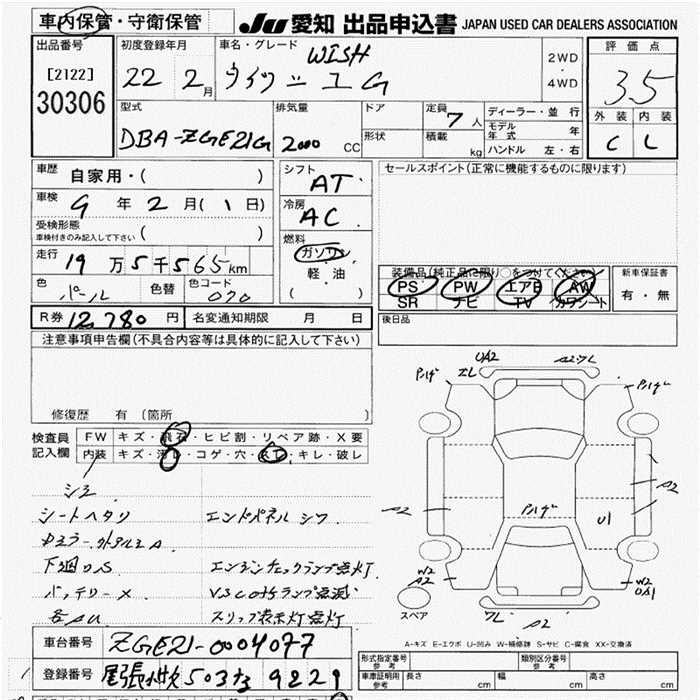 車内保管・守衛保管
JU 愛知 出品申込書 JAPAN USED CAR DEALERS ASSOCIATION
出品番号
[2122]
30306
初度登録年月
22 2月
車名・グレード
WISH
ウイッシュ G
2WD
・
4WD
評価点
3.5
外装 内装
C
型式
DBA-ZGE21G
排気量
2000 CC
ドア
形状
定員 7人
積載 kg
ディーラー・並行
モデル年式 年
ハンドル 左・右
車歴
自家用・( )
車検
9年2月(1日)
受検形態
車検付きのみ記入して下さい ( )
走行
19万5千565km
色
パール
色替
色コード
070
シフト
AT
冷房
AC
燃料
ガソリン
軽・油
( )
セールスポイント(正常に機能するものに限ります)
装備品(純正品に限り○をつけてください)
PS PW エアB AW
SR ナビ TV カワシート
新車保証書
有・無
R券 12,780円
名変通知期限 月 日
後日品
注意事項申告欄(不具合内容等は具体的に記入して下さい)
修復歴 有 (箇所 )
検査員
記入欄
FW キズ・飛石・ヒビ割・リペア跡・X要
内装 キズ・汚レ・コゲ・穴・スレ・キレ・破レ
シミ
シートヘタリ
エンドパネル シワ
下廻りS
エンジンチェックランプ点灯
バッテリーX
VSCOFFランプ点滅
各AU
スリップ表示灯点灯
UA2
A2
A2
U1
A2
W2
A2
W2
A2
スペア
A-キズ E-エクボ U-凹み W-補修跡 S-サビ C-腐食 XX-交換済
車台番号
ZGE21-0004077
登録番号
尾張小牧 503 す 9229
形式指定番号
参考
類別区分番号
参考
車庫証明用
参考
長さ cm
幅 cm
高さ cm